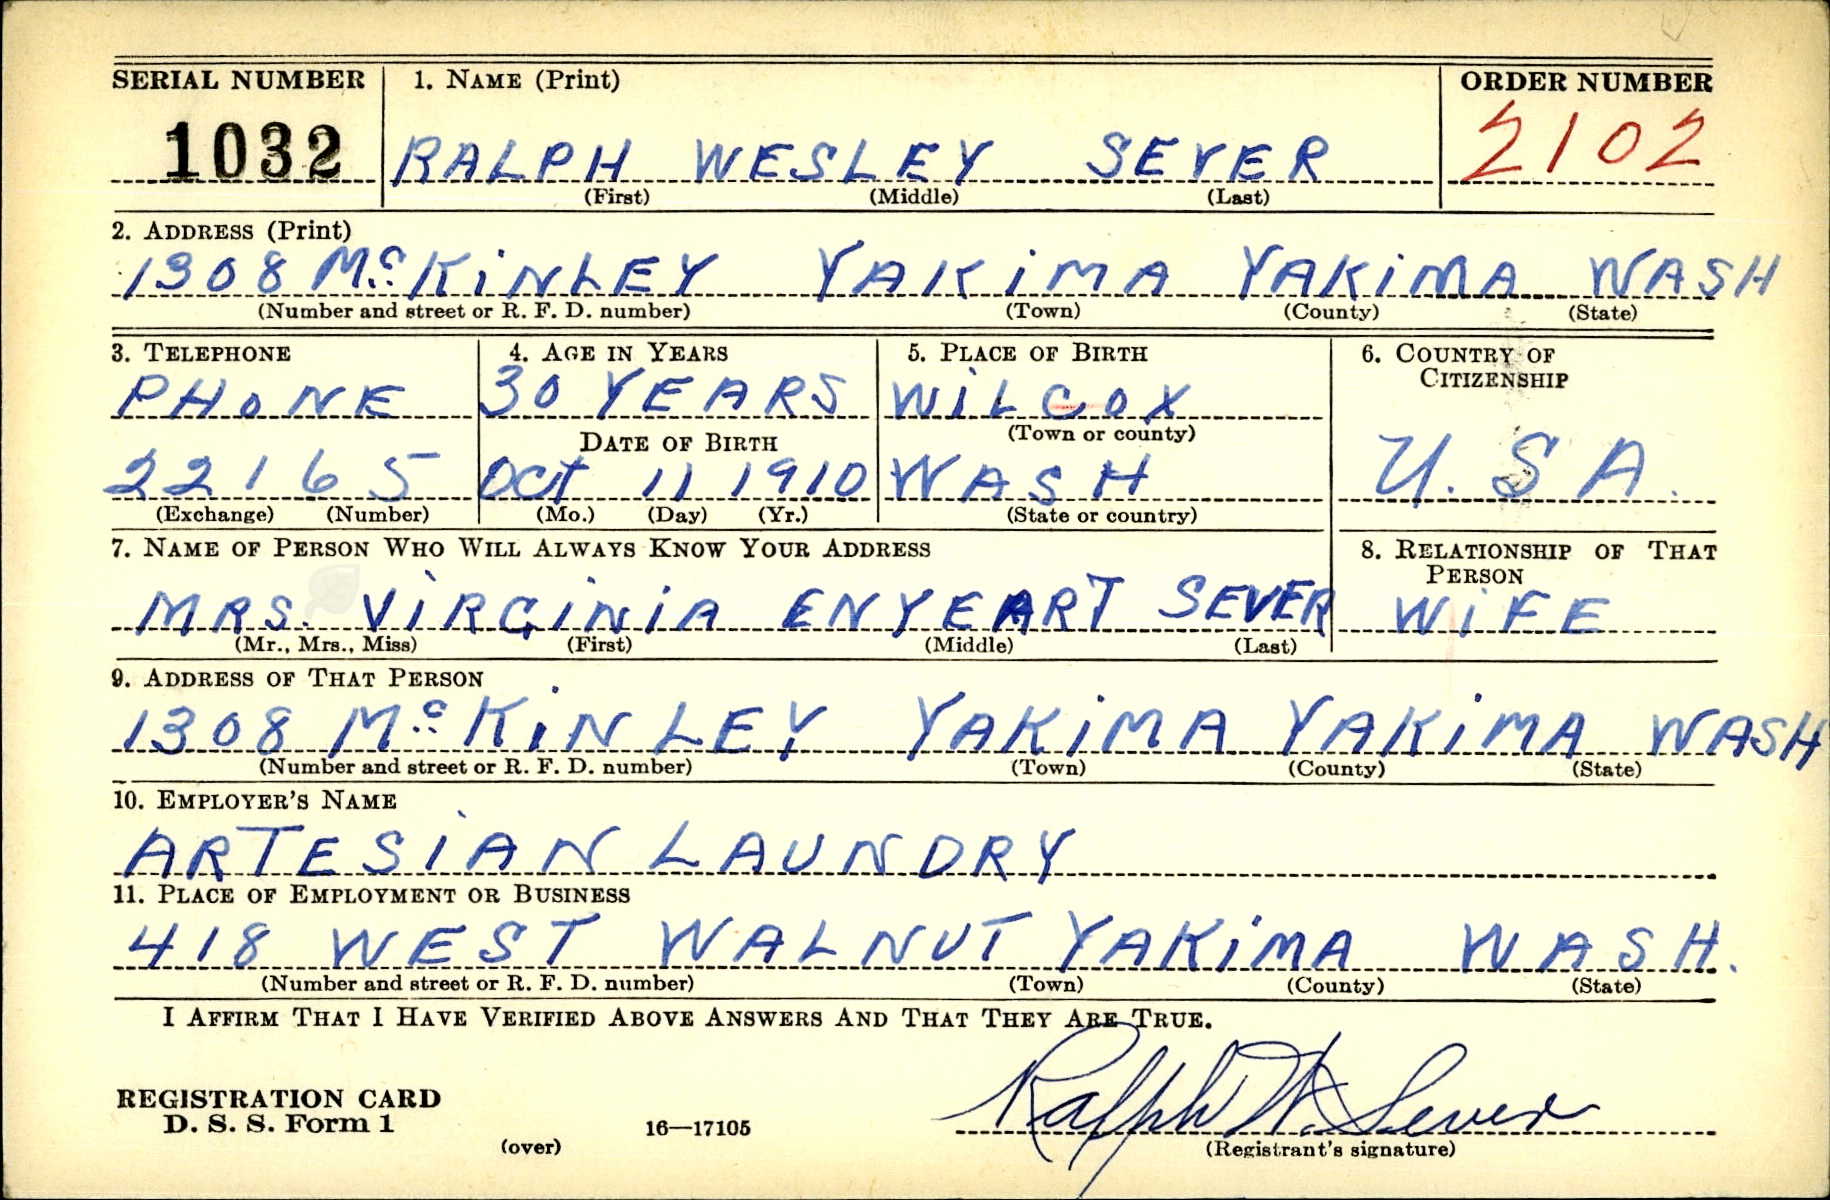 SERIAL NUMBER 1. NAME (Print) ORDER NUMBER
1032 RALPH WESLEY SEVER 2102
(First) (Middle) (Last)
2. ADDRESS (Print)
1308 McKiNLEY YAKiMA YAKiMA WASH
(Number and street or R. F. D. number) (Town) (County) (State)
3. TELEPHONE 4. AGE IN YEARS 5. PLACE OF BIRTH 6. COUNTRY OF
CITIZENSHIP
PHONE 30 YEARS WiLCOX
DATE OF BIRTH (Town or county)
22165 Oct 11 1910 WASH U.S.A.
(Exchange) (Number) (Mo.) (Day) (Yr.) (State or country)
7. NAME OF PERSON WHO WILL ALWAYS KNOW YOUR ADDRESS 8. RELATIONSHIP OF THAT
PERSON
MRS. ViRGiNiA ENYEART SEVER WiFE
(Mr., Mrs., Miss) (First) (Middle) (Last)
9. ADDRESS OF THAT PERSON
1308 McKiNLEY YAKiMA YAKiMA WASH
(Number and street or R. F. D. number) (Town) (County) (State)
10. EMPLOYER'S NAME
ARTESiAN LAUNDRY
11. PLACE OF EMPLOYMENT OR BUSINESS
418 WEST WALNUT YAKiMA WASH.
(Number and street or R. F. D. number) (Town) (County) (State)
I AFFIRM THAT I HAVE VERIFIED ABOVE ANSWERS AND THAT THEY ARE TRUE.
REGISTRATION CARD
D. S. S. Form 1 Ralph W. Sever
(over) 16—17105 (Registrant's signature)